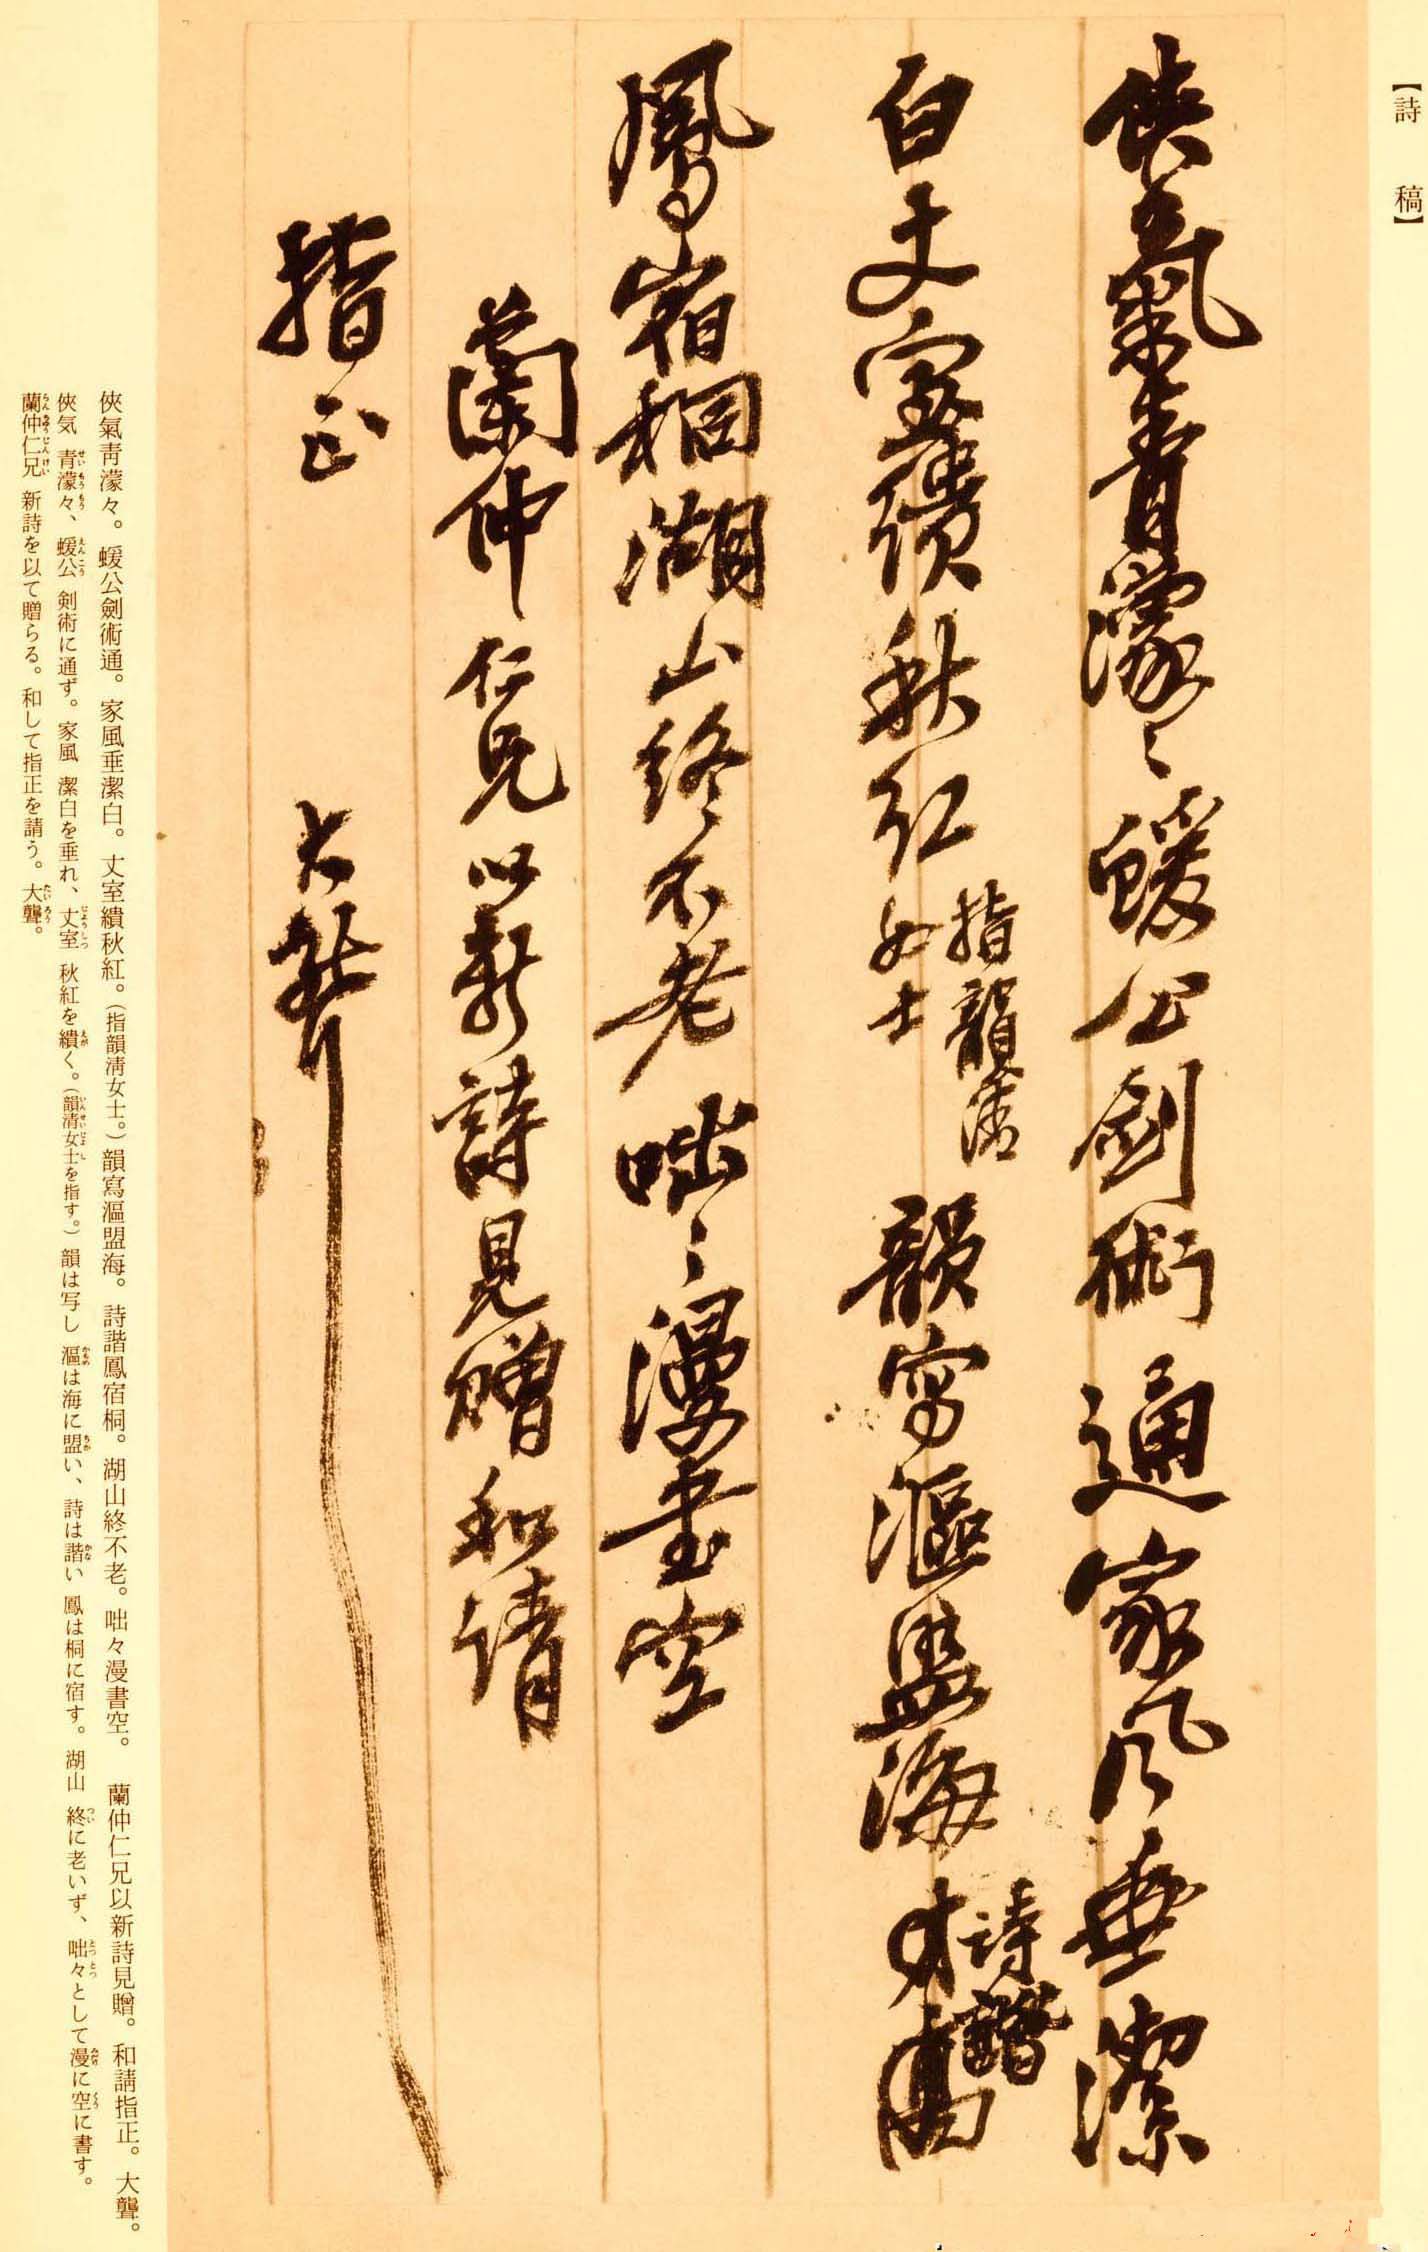 【詩稿】
俠氣青濛々蝯公劍術通家風垂潔
白丈室繢秋紅指韻清
女士韻寫漚盟海詩諧
鳳宿桐湖山終不老咄々漫書空
蘭仲仁兄以新詩見贈和請
指正 大聾
俠氣靑濛々。蝯公劍術通。家風垂潔白。丈室繢秋紅。（指韻淸女士。）韻寫漚盟海。詩諧鳳宿桐。湖山終不老。咄々漫書空。 蘭仲仁兄以新詩見贈。和請指正。大聾。
俠気 青濛々、蝯公 剣術に通ず。家風 潔白を垂れ、丈室 秋紅を繢く。（韻清女士を指す。）韻は写し 漚は海に盟い、詩は諧い 鳳は桐に宿す。湖山 終に老いず、咄々として漫に空に書す。
蘭仲仁兄 新詩を以て贈らる。和して指正を請う。大聾。